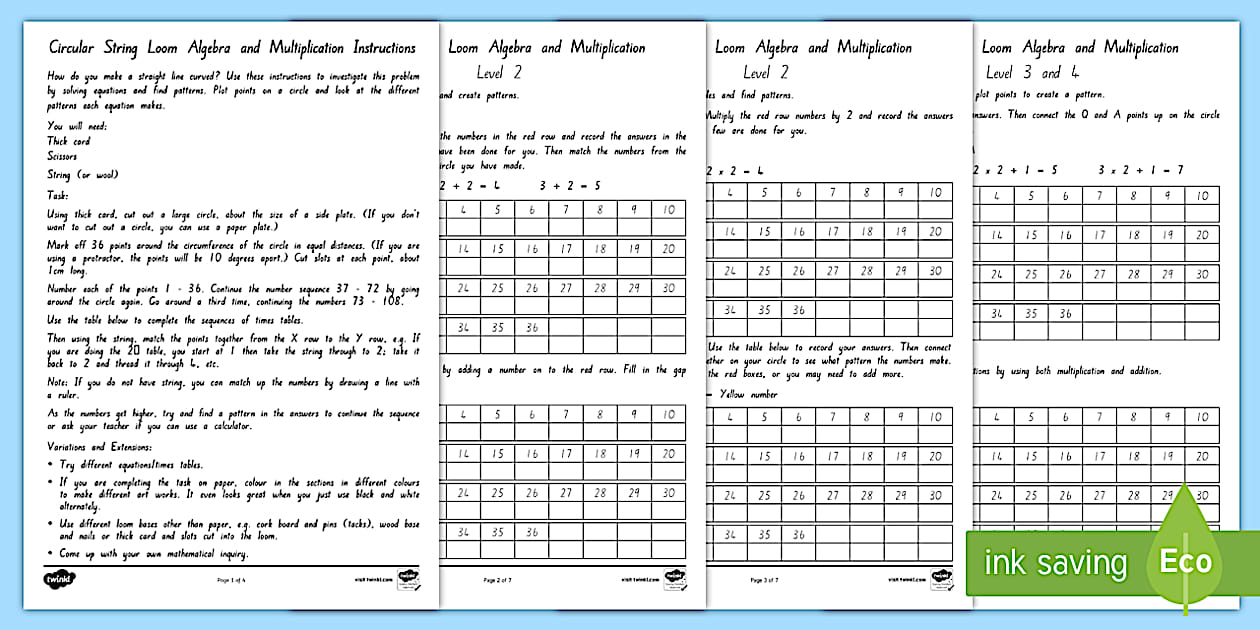 Circular String Loom Algebra and Multiplication Instructions
How do you make a straight line curved? Use these instructions to investigate this problem
by solving equations and find patterns. Plot points on a circle and look at the different
patterns each equation makes.
You will need:
Thick card
Scissors
String (or wool)
Task:
Using thick card, cut out a large circle, about the size of a side plate. (If you don't
want to cut out a circle, you can use a paper plate.)
Mark off 36 points around the circumference of the circle in equal distances. (If you are
using a protractor, the points will be 10 degrees apart.) Cut slots at each point, about
1cm long.
Number each of the points 1 - 36. Continue the number sequence 37 - 72 by going
around the circle again. Go around a third time, continuing the numbers 73 - 108.
Use the table below to complete the sequences of times tables.
Then using the string, match the points together from the X row to the Y row, e.g. If
you are doing the 2 table, you start at 1 then take the string through to 2; take it
back to 2 and thread it through 4, etc.
Note: If you do not have string, you can match up the numbers by drawing a line with
a ruler.
As the numbers get higher, try and find a pattern in the answers to continue the sequence
or ask your teacher if you can use a calculator.
Variations and Extensions:
• Try different equations/times tables.
• If you are completing the task on paper, colour in the sections in different colours
to make different art works. It even looks great when you just use black and white
alternately.
• Use different loom bases other than paper, e.g. cork board and pins (tacks), wood base
and nails or thick card and slots cut into the loom.
• Come up with your own mathematical inquiry.
twinkl
Page 1 of 4
visit twinkl.com
Loom Algebra and Multiplication
Level 2
and create patterns.
the numbers in the red row and record the answers in the
have been done for you. Then match the numbers from the
circle you have made.
2 + 2 = 4 3 + 2 = 5
4 5 6 7 8 9 10
14 15 16 17 18 19 20
24 25 26 27 28 29 30
34 35 36
by adding a number on to the red row. Fill in the gap
4 5 6 7 8 9 10
14 15 16 17 18 19 20
24 25 26 27 28 29 30
34 35 36
Page 2 of 7
visit twinkl.com
Loom Algebra and Multiplication
Level 2
les and find patterns.
Multiply the red row numbers by 2 and record the answers
few are done for you.
2 x 2 = 4
4 5 6 7 8 9 10
14 15 16 17 18 19 20
24 25 26 27 28 29 30
34 35 36
Use the table below to record your answers. Then connect
ether on your circle to see what pattern the numbers make.
the red boxes, or you may need to add more.
= Yellow number
4 5 6 7 8 9 10
14 15 16 17 18 19 20
24 25 26 27 28 29 30
34 35 36
Page 3 of 7
visit twinkl.com
Loom Algebra and Multiplication
Level 3 and 4
plot points to create a pattern.
nswers. Then connect the Q and A points up on the circle
2 x 2 + 1 = 5 3 x 2 + 1 = 7
4 5 6 7 8 9 10
14 15 16 17 18 19 20
24 25 26 27 28 29 30
34 35 36
tions by using both multiplication and addition.
4 5 6 7 8 9 10
14 15 16 17 18 19 20
24 25 26 27 28 29 30
ink saving Eco